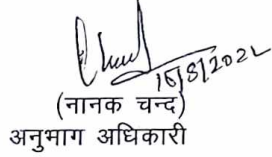 16/8/2022
(नानक चन्द)
अनुभाग अधिकारी